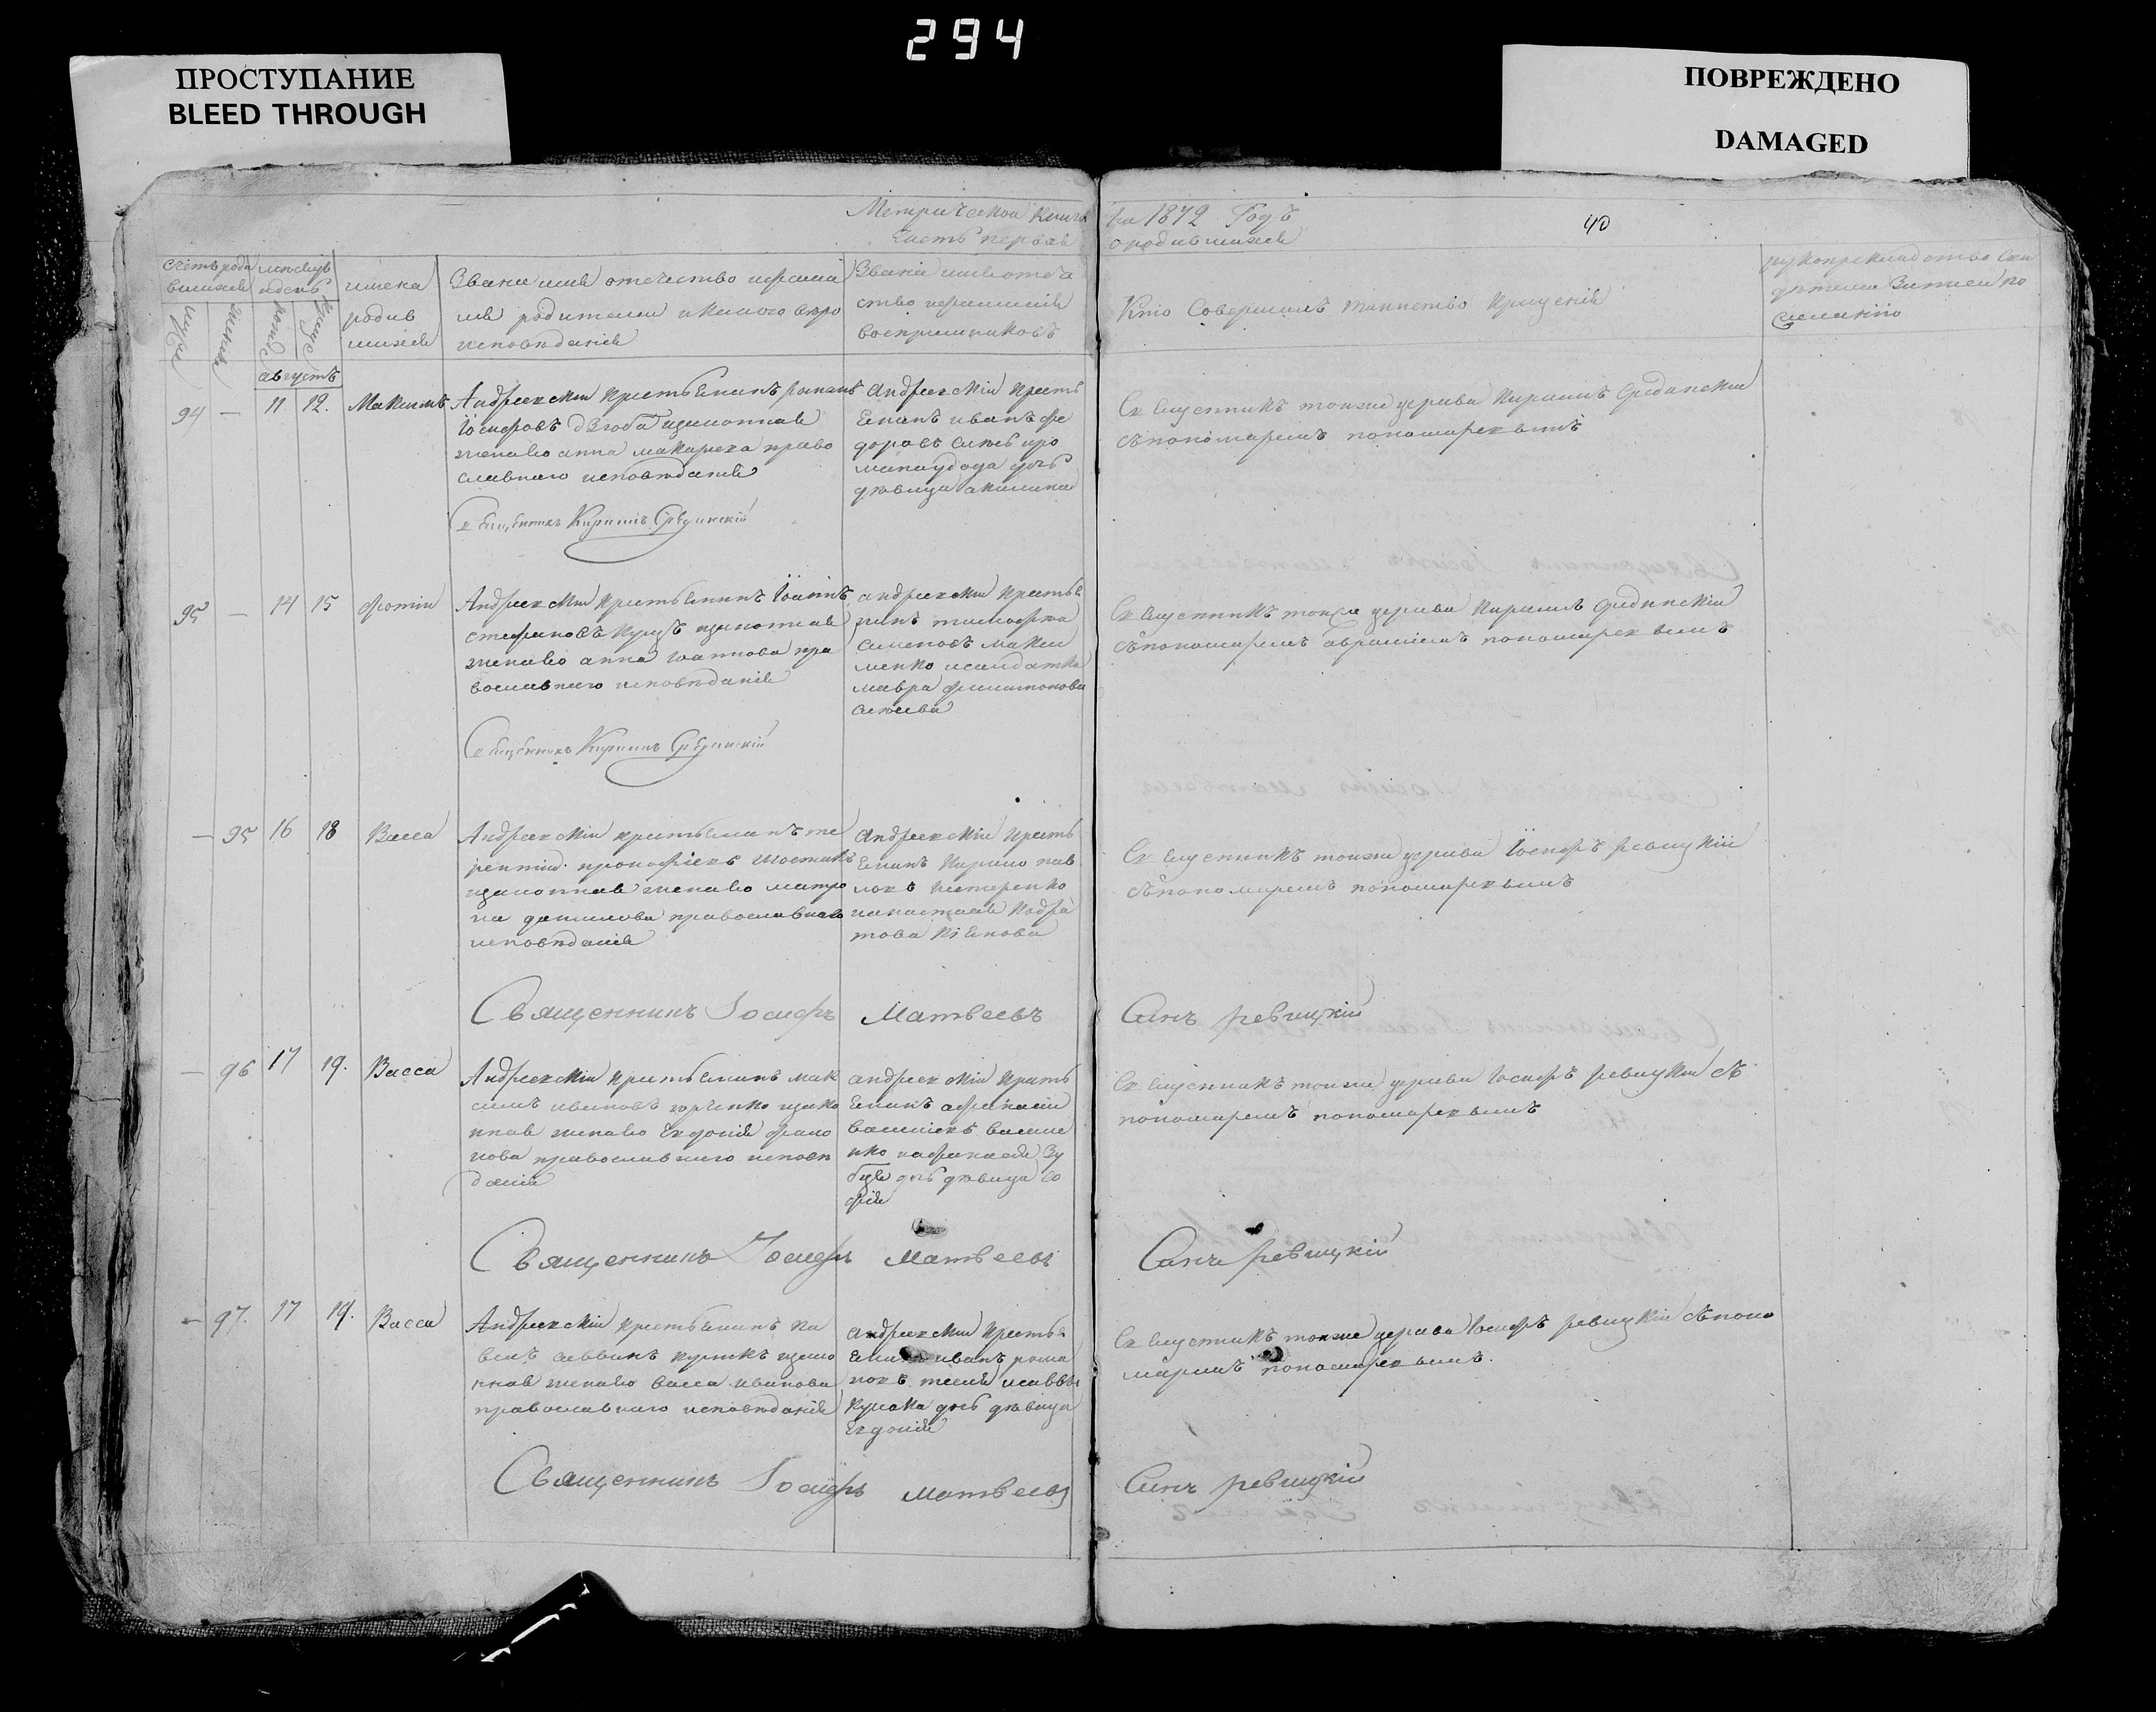 294
ПРОСТУПАНИЕ
BLEED THROUGH
ПОВРЕЖДЕНО
DAMAGED
Метрической книги на 1872 Годъ
40
Часть первая о родившихся
Счетъ роди вшихся
мѣсяцъ и день
имена родив шихся
Званіе имя отечество и фами
лія родителей и какого вѣро
исповѣданія
Званіе имя отече
ство и фамилія
воспріемниковъ
Кто Совершалъ таинство крещенія
рукоприкладство Сви
дѣтелей записи по
желанію
августъ
94 — 11 12. Максимъ
Андреевскій крестьянинъ романъ
Іосифовъ Дзюба и законная
жена его анна макарьева право
славнаго исповѣданія
Андреевскій кресть
янинъ иванъ фе
доровъ
дочь
дѣвица акилина
Священникъ тоижи церкви Кирилъ Срединскій
съ пономаремъ пономаревымъ
Священникъ Кирилъ Срединскій
95 — 14 15 фотій
Андреевскій крестьянинъ Іоаннъ
стефановъ Куцъ и законная
жена его анна іоаннова пра
вославнаго исповѣданія
андреевскій крестья
нинъ тимофей
семеновъ макси
менко и солдатка
мавра филимонова
Священникъ тоижи церкви Кирилъ Срединскій
съ пономаремъ аврамиемъ пономаревымъ
Священникъ Кирилъ Срединскій
— 95 16 18 Васса
Андреевскій крестьянинъ те
рентій прокофіевъ шостакъ
и законная жена его матро
на данилова православнаго
исповѣданія
Андреевскій кресть
янинъ Кирило пав
ловъ нестеренко
и анастасія Кодра
това
Священникъ тоижи церкви Іосифъ ревицкій
съ пономаремъ пономаревымъ
Священникъ Іосифъ Матвеевъ Синъ ревицкій
— 96 17 19. Васса
Андреевскій крестьянинъ мак
симъ ивановъ и зако
нная жена его Евдокія
православнаго исповѣ
данія
андреевскій кресть
янинъ афанасій
васильевъ василе
нко и афанасія Зу
дочь дѣвица со
фія
Священникъ тоижи церкви Іосифъ ревицкій съ
пономаремъ пономаревымъ
Священникъ Іосифъ Матвеевъ Синъ ревицкій
— 97. 17 19. Васса
Андреевскій крестьянинъ па
велъ саввинъ и зако
нная жена его васса иванова
православнаго исповѣданія
андреевскій крестья
нинъ иванъ рома
новъ и саввы
дочь дѣвица
Евдокія
Священникъ тоижи церкви Іосифъ ревицкій съ поно
маремъ пономаревымъ.
Священникъ Іосифъ матвеевъ Синъ ревицкій